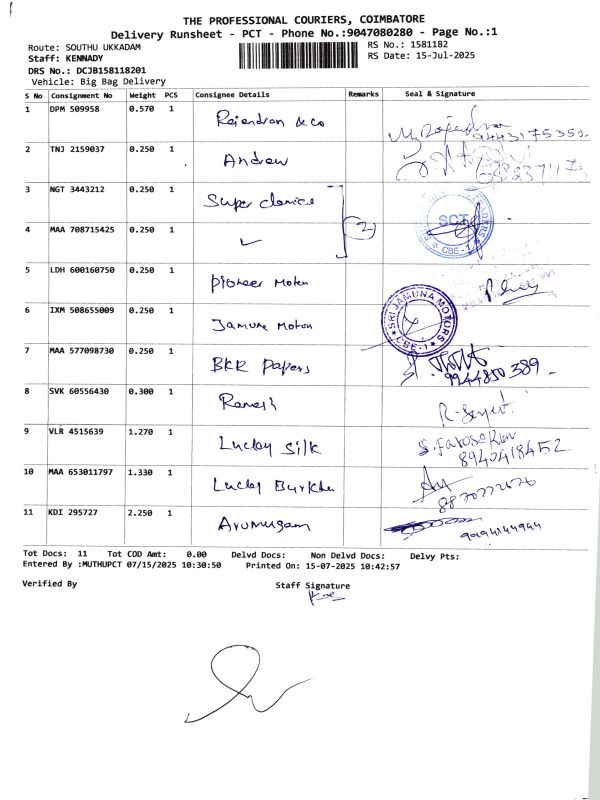 THE PROFESSIONAL COURIERS, COIMBATORE
Delivery Runsheet - PCT - Phone No.:9047080280 - Page No.:1
Route: SOUTHU UKKADAM
RS No.: 1581182
Staff: KENNADY
RS Date: 15-Jul-2025
DRS No.: DCJB158118201
Vehicle: Big Bag Delivery
S No Consignment No Weight PCS Consignee Details Remarks Seal & Signature
1 DPM 509958 0.570 1 Rajendran & co
2 TNJ 2159037 0.250 1 Andrew
3 NGT 3443212 0.250 1 Super
4 MAA 708715425 0.250 1 ✓ 2 SCT CBE-1
5 LDH 600160750 0.250 1 Pioneer Moton
6 IXM 508655009 0.250 1 Jamuna Moton SRI JAMUNA MOTORS CBE-1
7 MAA 577098730 0.250 1 BKR Papers 9244850389
8 SVK 60556430 0.300 1 Ramesh
9 VLR 4515639 1.270 1 Lucky Silk 8940418452
10 MAA 653011797 1.330 1 Lucky
11 KDI 295727 2.250 1 Arumugam
Tot Docs: 11 Tot COD Amt: 0.00 Delvd Docs: Non Delvd Docs: Delvy Pts:
Entered By :MUTHUPCT 07/15/2025 10:30:50 Printed On: 15-07-2025 10:42:57
Verified By Staff Signature